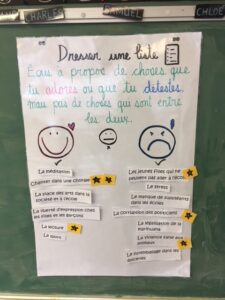 CHARLES
SAMUEL
CHLOÉ
Dresser une liste
Écris à propos de choses que
tu adores ou que tu détestes,
mais pas de choses qui sont entre
les deux.
La méditation
Chanter dans une chorale
La place des arts dans la
société et à l'école
La liberté d'expression chez
les filles et les garçons
La lecture
Le sport
Les jeunes filles qui ne
peuvent pas aller à l'école
Le stress
Le manque de transports
dans les écoles
La corruption des politiciens
La légalisation de la
marijuana
La violence faite aux
animaux